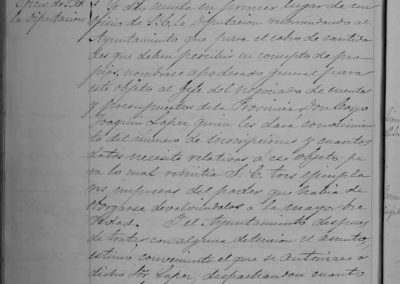 la Diputación
Se dió cuenta en primer lugar de un
oficio de S. E. la Diputacion recomendando al
Ayuntamiento que para el cobro de cantida
des que deben percibir en concepto de pro
pios, nombrase apoderado general para
este objeto al Gefe del Negociado de cuentas
y presupuestos de la Provincia Don
Joaquin Lopez, quien les dará conocimien
to del número de inscripciones y cuantos
datos necesite relativos a ese objeto, pa
ra lo cual remitia S. E. tres ejempla
res impresos del poder que habia de
otorgarse devolviendolos a la mayor bre
vedad. I el Ayuntamiento despues
de tratar con alguna detencion el asunto,
estimó conveniente el que se autorizase a
dicho Sr. Lopez, despachandon cuanto